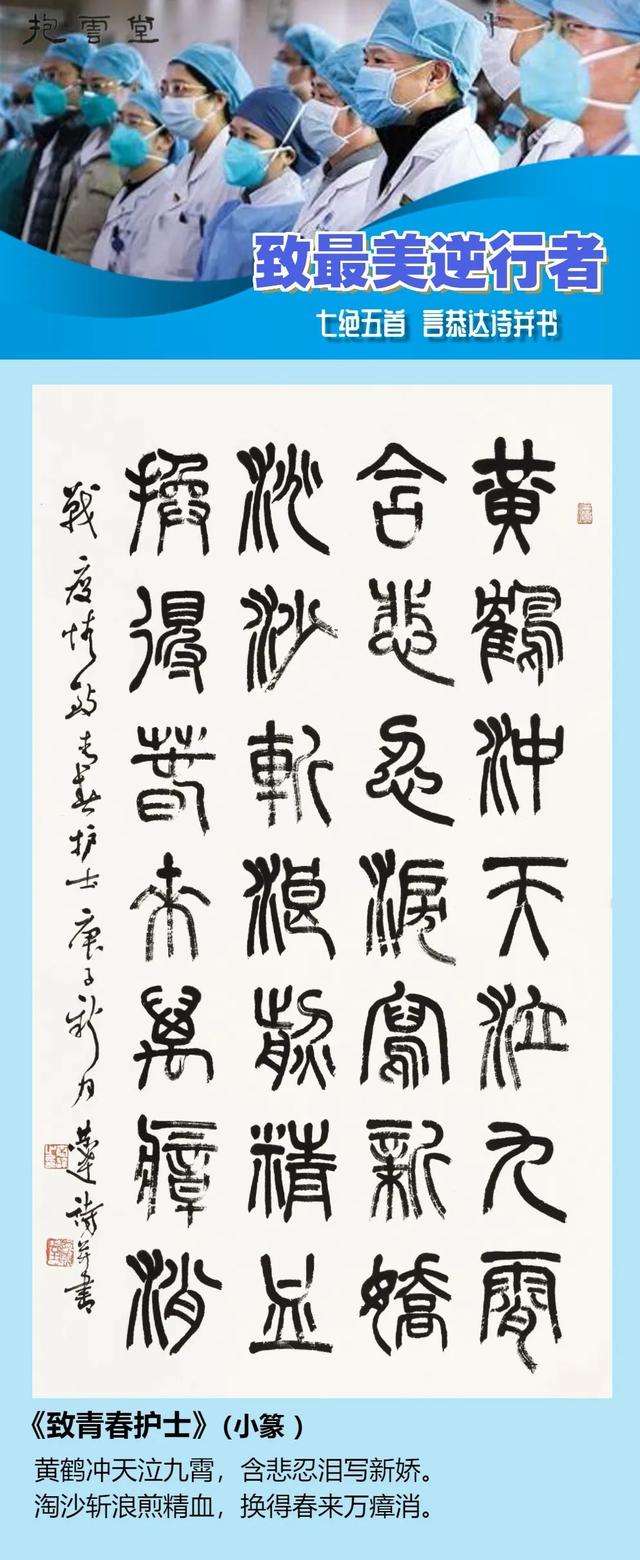 抱雲堂
致最美逆行者
七绝五首 言恭达诗并书
黄鶴沖天泣九霄
含悲忍淚寫新嬌
淘沙斬浪煎精血
換得春來萬瘴消
戰疫情致青春护士庚子新月恭達詩并書
《致青春护士》(小篆 )
黄鹤冲天泣九霄，含悲忍泪写新娇。
淘沙斩浪煎精血，换得春来万瘴消。